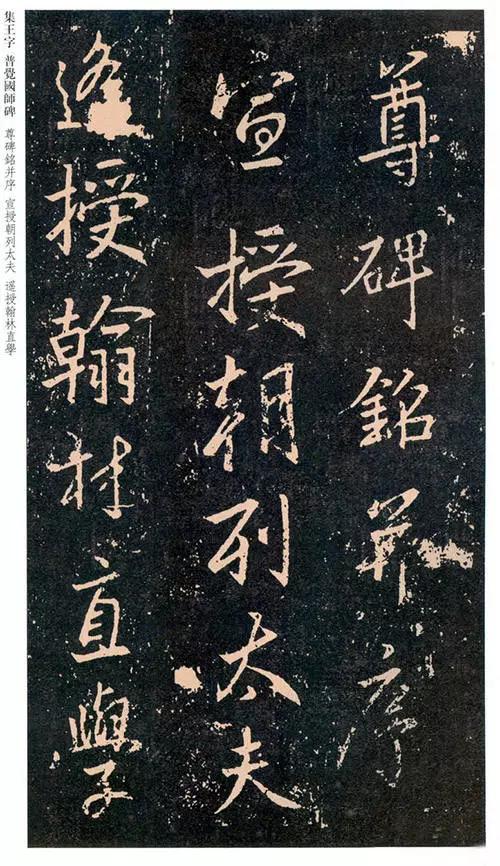 尊碑銘并序
宣授朝列太夫
遥授翰林直學
集王字 普覺國師碑 尊碑銘并序 宣授朝列太夫 遥授翰林直學